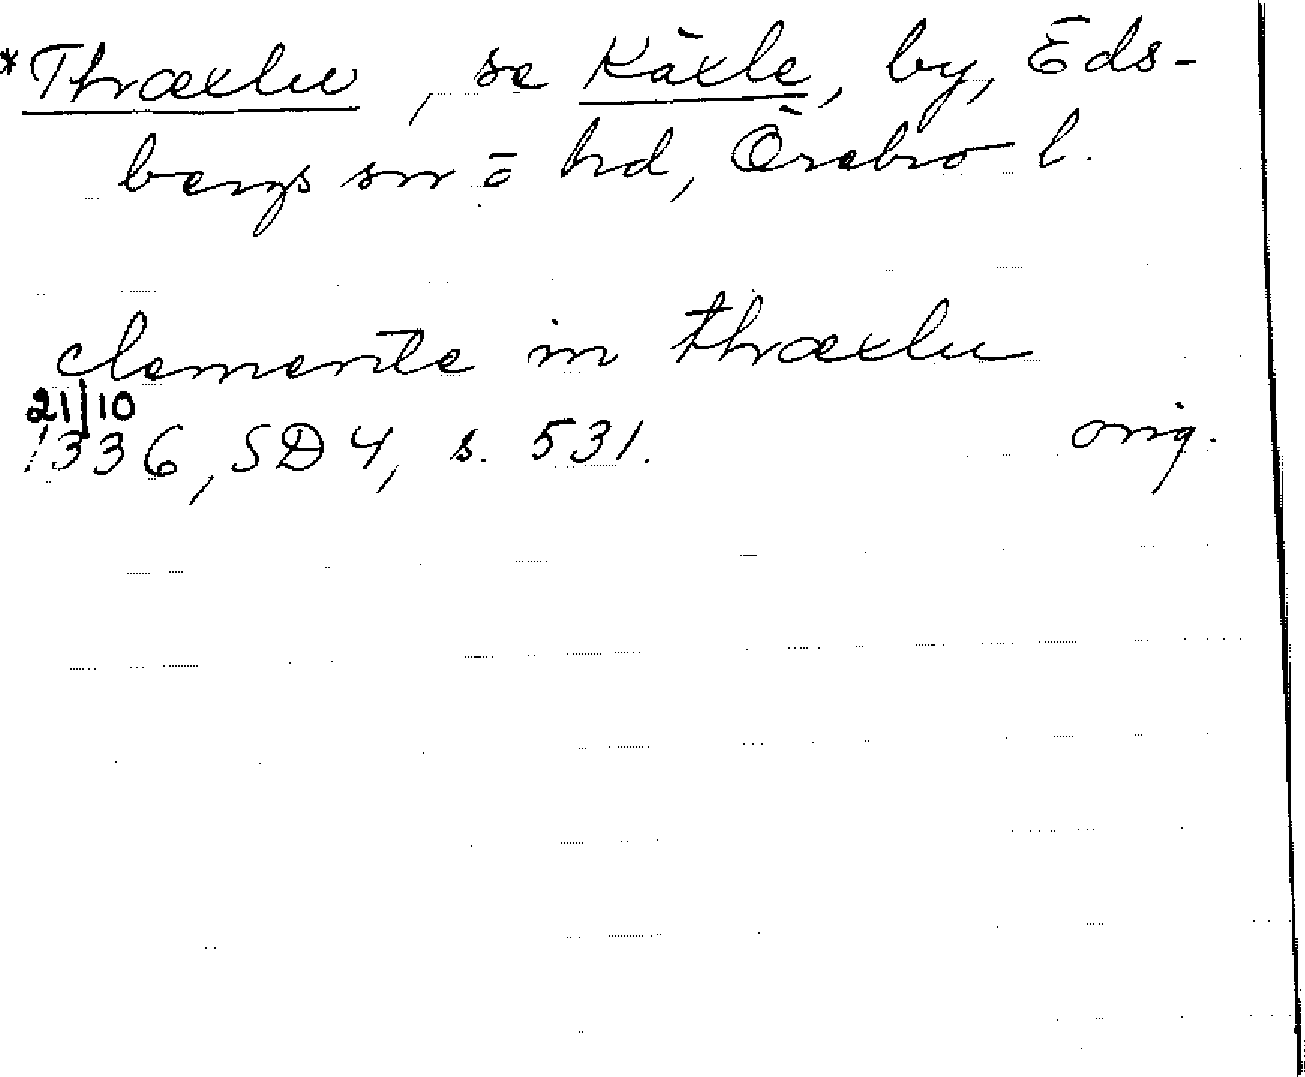 *Thræxlu, se Käxle, by, Eds-
bergs sn o hd, Örebro l.
clemente in thræxlu
21/10
1336, SD 4, s. 531. orig.